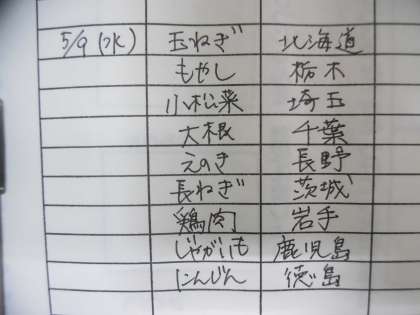 5/9(水) 玉ねぎ 北海道
もやし 栃木
小松菜 埼玉
大根 千葉
えのき 長野
長ねぎ 茨城
鶏肉 岩手
じゃがいも 鹿児島
にんじん 徳島